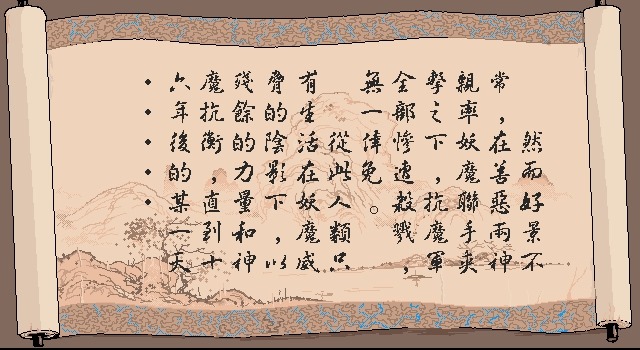 然而好景不
常,在善惡兩神
親率妖魔聯手夾
擊之下,抗魔軍
全部慘遭殺戮,
無一倖免。
從此人類只
有生活在妖魔威
脅的陰影下,以
殘餘的力量和神
魔抗衡,直到十
六年後的某一天
•••••